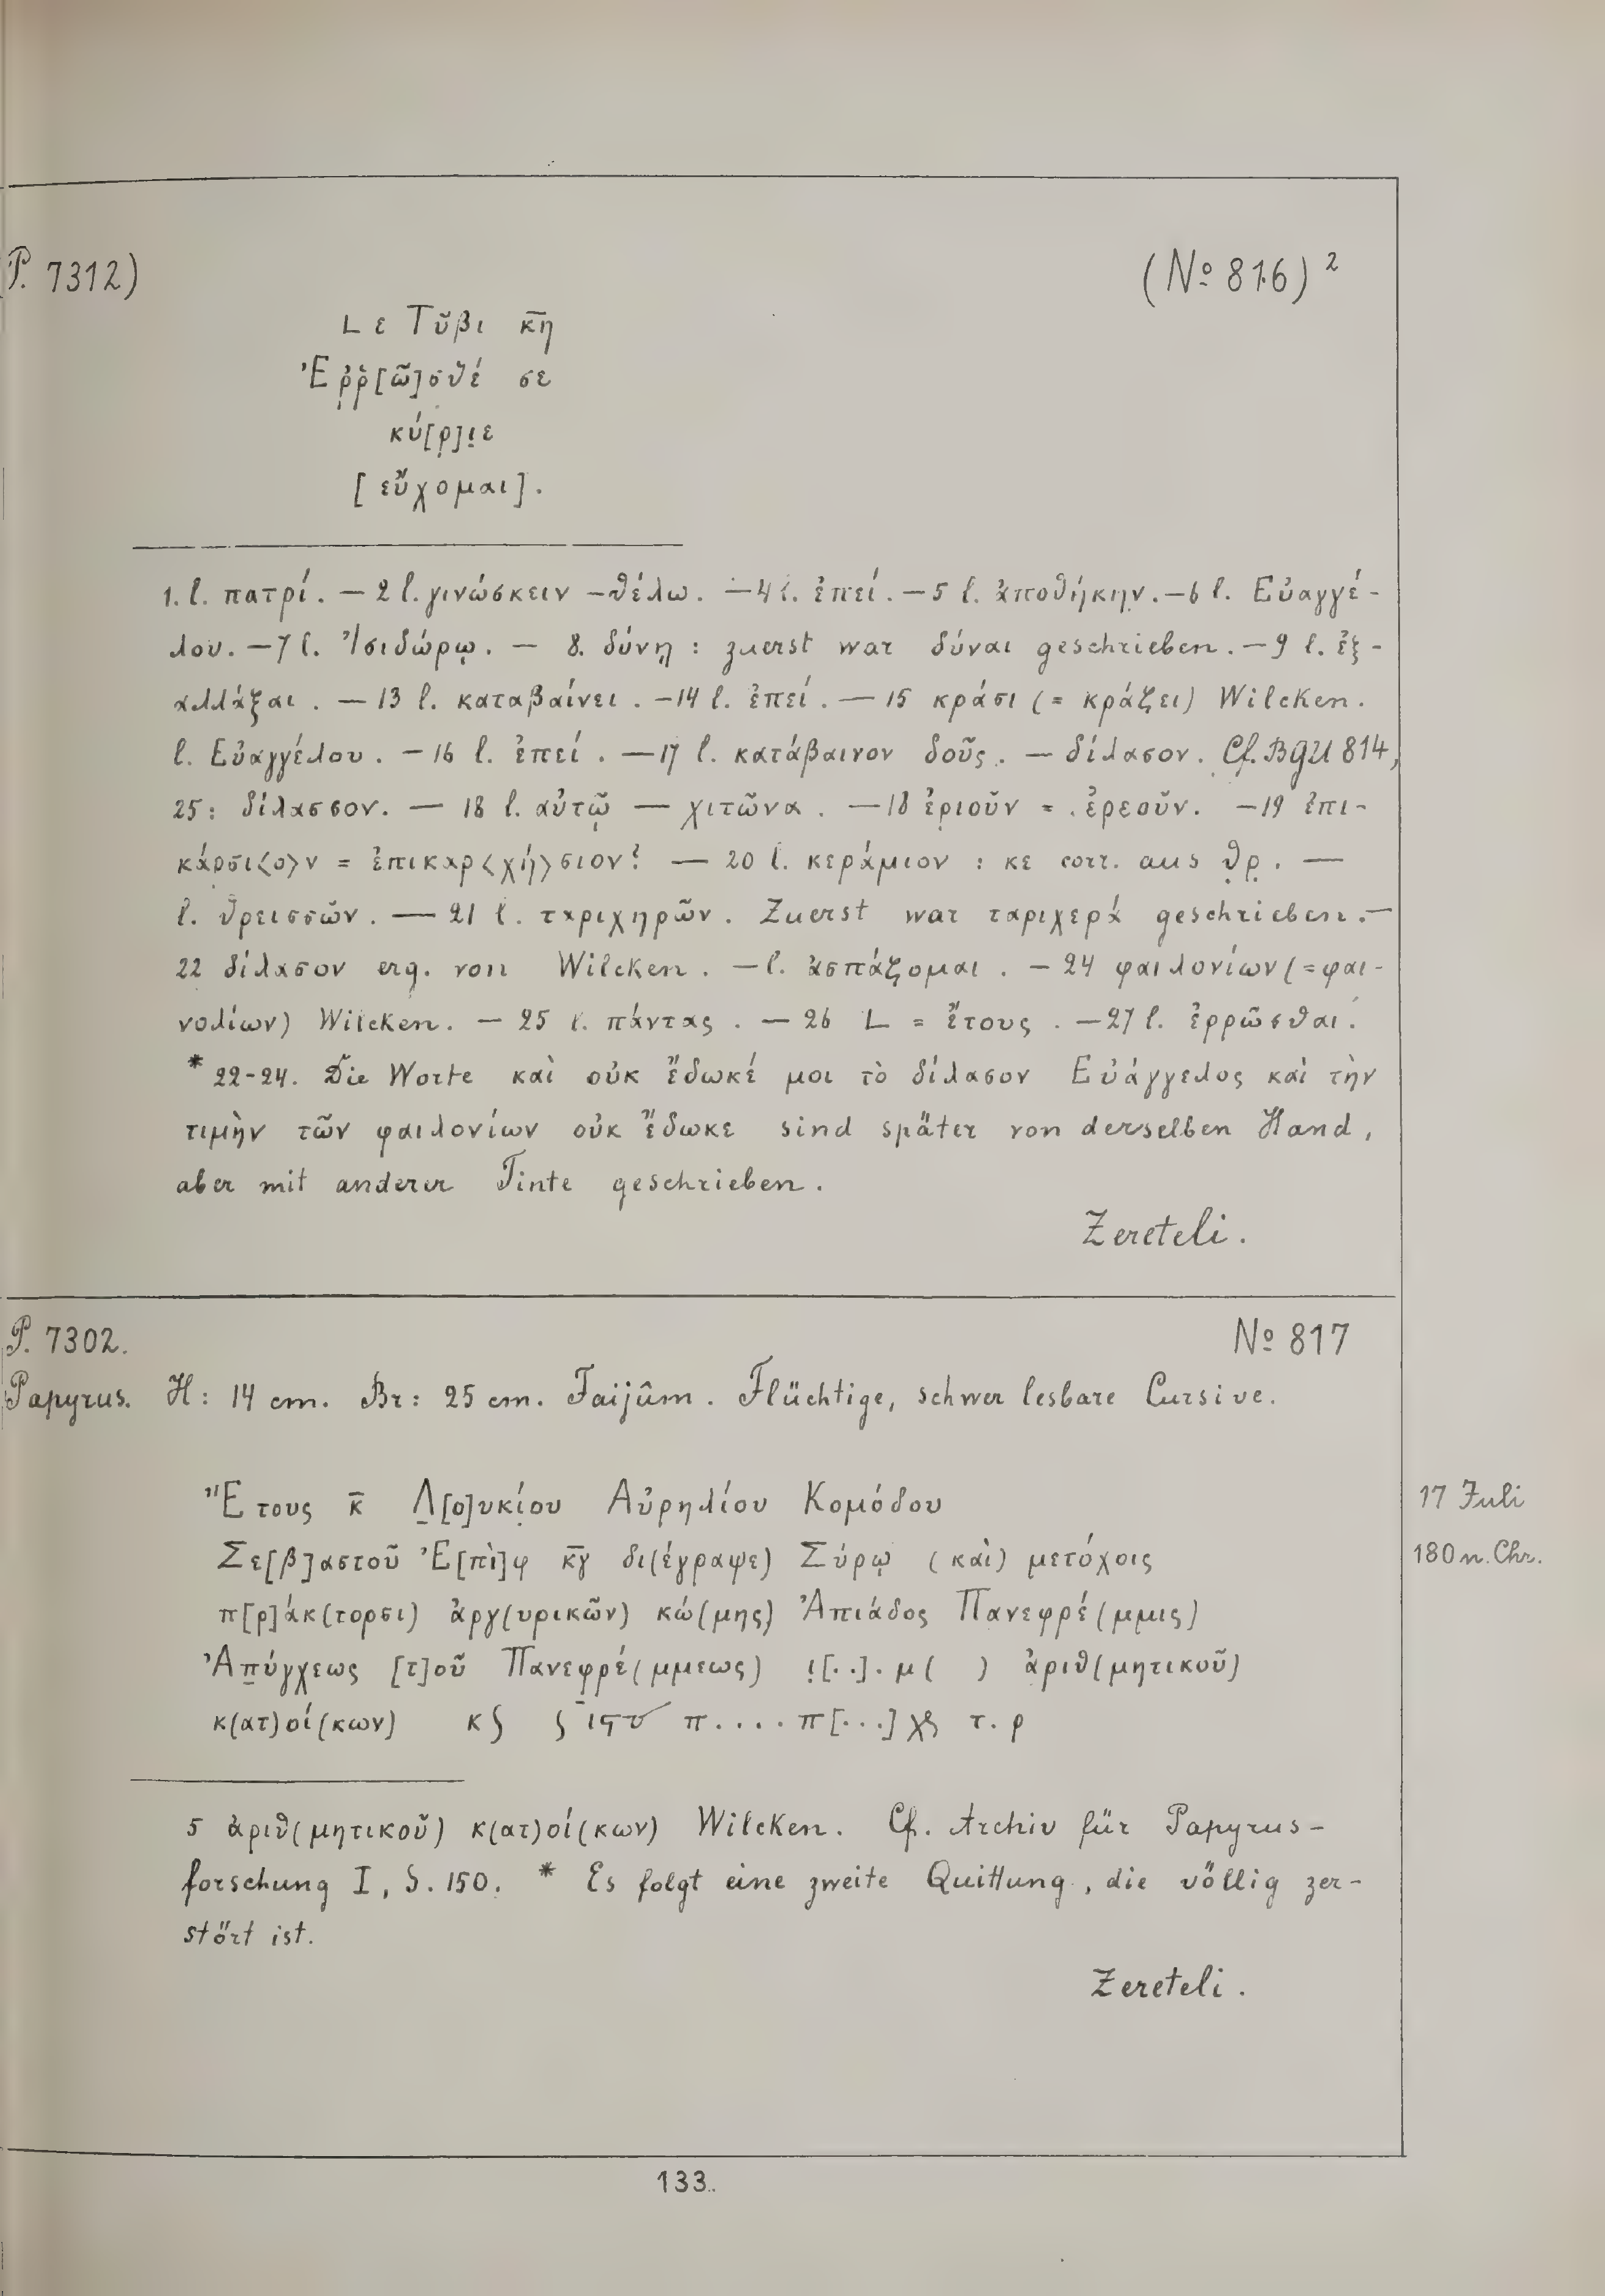 (P. 7312) (№ 816)²
L ε Τῦβι κ̅η̅
Ἐρ̣ρ̣[ῶ]σθέ σε
κύ[ρ]ι̣ε
[εὔχομαι].
1. l. πατρί. — 2 l. γινώσκειν – θέλω. — 4 l. ἐπεί. — 5 l. ἀποθήκην. — 6 l. Εὐαγγέ-
λου. — 7 l. Ἰσιδώρῳ. — 8. δύνῃ : zuerst war δύναι geschrieben. — 9 l. ἐξ-
αλλάξαι. — 13 l. καταβαίνει. — 14 l. ἐπεί. — 15 κράσι (= κράζει) Wilcken.
l. Εὐαγγέλου. — 16 l. ἐπεί. — 17 l. κατάβαινον δοῦς. — δίλασον. Cf. BGU 814,
25: δίλασσον. — 18 l. αὐτῷ — χιτῶνα. — 18 ἐριοῦν = ἐρεοῦν. — 19 ἐπι-
κάρσι<ο>ν = ἐπικαρ<χή>σιον? — 20 l. κεράμιον : κε corr. aus θ̣ρ̣. —
l. θρεισσῶν. — 21 l. ταριχηρῶν. Zuerst war ταριχερά geschrieben. —
22 δίλασον erg. von Wilcken. — l. ἀσπάζομαι. — 24 φαιλονίων (= φαι-
νολίων) Wilcken. — 25 l. πάντας. — 26 L = ἔτους. — 27 l. ἐρρῶσθαι.
* 22-24. Die Worte καὶ οὐκ ἔδωκέ μοι τὸ δίλασον Εὐάγγελος καὶ τὴν
τιμὴν τῶν φαιλονίων οὐκ ἔδωκε sind später von derselben Hand,
aber mit anderer Tinte geschrieben.
Zereteli.
P. 7302. № 817
Papyrus. H: 14 cm. Br: 25 cm. Faijûm. Flüchtige, schwer lesbare Cursive.
Ἔτους κ̅ Λ̣[ο]υκίου Αὐρηλίου Κομόδου 17 Juli
Σε[β]αστοῦ Ἐ[πὶ]φ κ̅γ̅ δι(έγραψε) Σύρῳ (καὶ) μετόχοις 180 n. Chr.
π[ρ]άκ(τορσι) ἀργ(υρικῶν) κώ(μης) Ἀπιάδος Πανεφρέ(μμις)
Ἀπ̣ύγχεως [τ]οῦ Πανεφρέ(μμεως) ι̣[..]. μ( ) ἀριθ(μητικοῦ)
κ(ατ)οί(κων) π.... π[...] τ. ρ
5 ἀριθ(μητικοῦ) κ(ατ)οί(κων) Wilcken. Cf. Archiv für Papyrus-
forschung I, S. 150. * Es folgt eine zweite Quittung, die völlig zer-
stört ist.
Zereteli.
133.